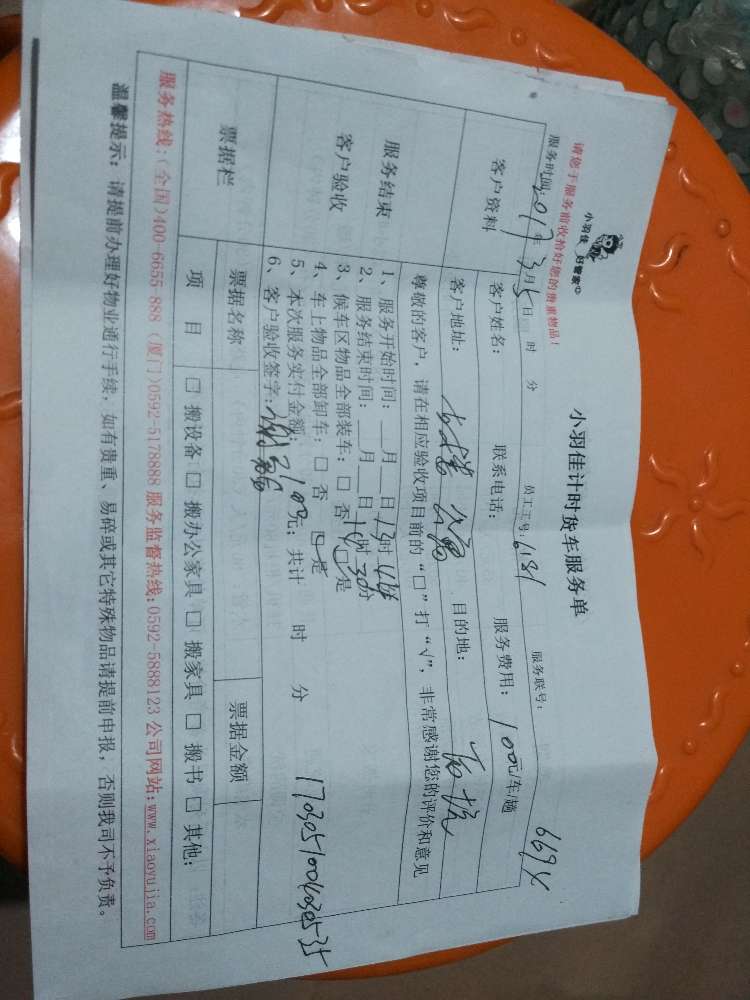 小羽佳 好管家
小羽佳计时货车服务单
请您于服务前收拾好您的贵重物品！
服务时间：2017年3月5日 时 分 员工工号：6181 服务联号： 669X
客户资料
客户姓名： 联系电话： 服务费用：100元/车/趟
客户地址： 目的地：
尊敬的客户，请在相应验收项目前的“□”打“√”，非常感谢您的评价和意见
服务结束
客户验收
1、服务开始时间：__月__日13时 分
2、服务结束时间：__月__日14时30分
3、候车区物品全部装车：□ 否 □ 是
4、车上物品全部卸车：□ 否 □ 是
5、本次服务实付金额：100元；共计 时 分
6、客户验收签字：
1703051004030535
票据栏 票据名称 票据金额
项 目 □ 搬设备 □ 搬办公家具 □ 搬家具 □ 搬书 □ 其他：
服务热线：(全国)400-6655-888 (厦门)0592-5178888 服务监督热线:0592-5888123 公司网站:www.xiaoyujia.com
温馨提示：请提前办理好物业通行手续，如有贵重、易碎或其它特殊物品请提前申报，否则我司不予负责。